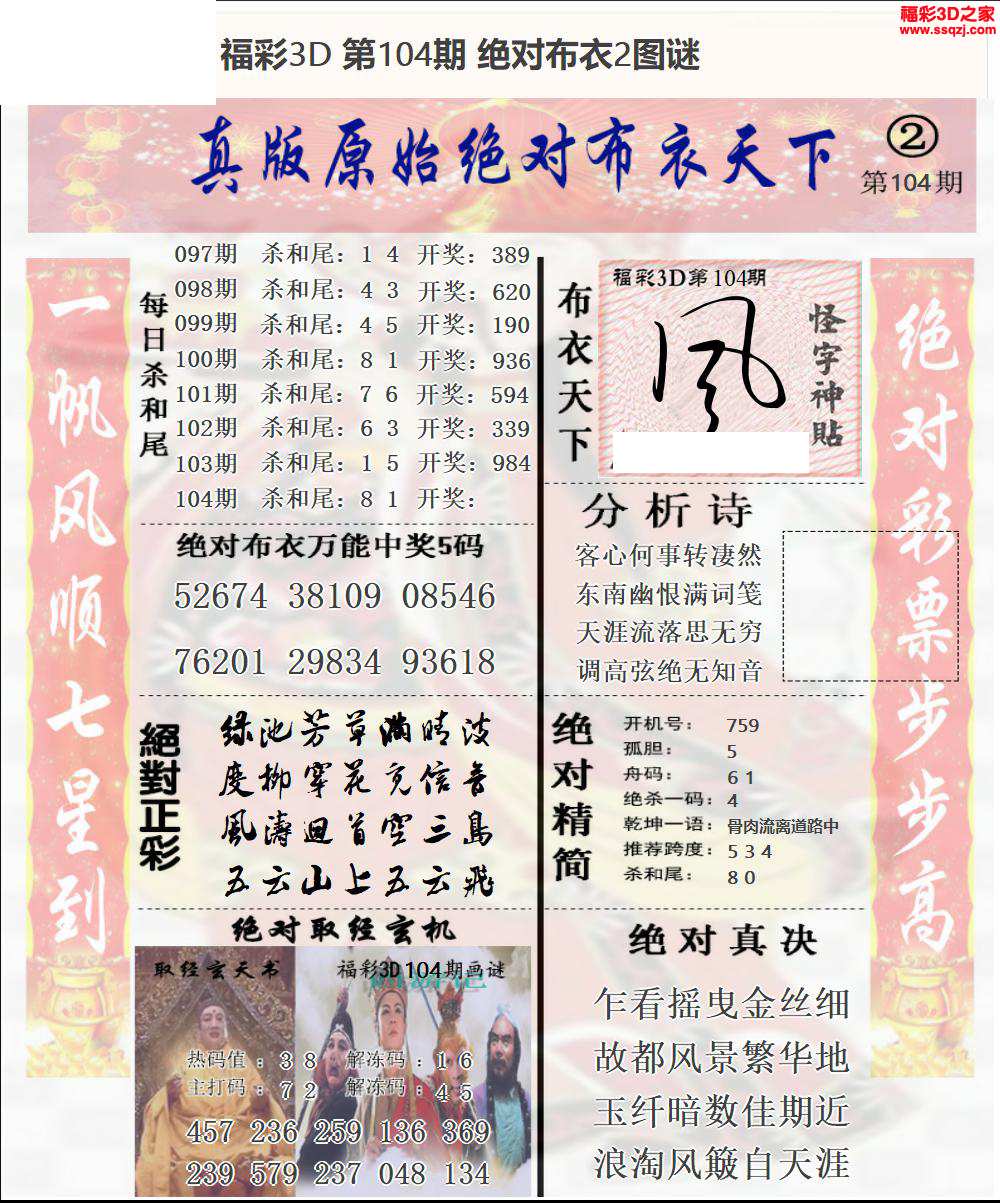 福彩3D之家
www.ssqzj.com
福彩3D 第104期 绝对布衣2图谜
真版原始绝对布衣天下
②
第104期
一帆风顺七星到
每日杀和尾
097期 杀和尾：1 4 开奖：389
098期 杀和尾：4 3 开奖：620
099期 杀和尾：4 5 开奖：190
100期 杀和尾：8 1 开奖：936
101期 杀和尾：7 6 开奖：594
102期 杀和尾：6 3 开奖：339
103期 杀和尾：1 5 开奖：984
104期 杀和尾：8 1 开奖：
绝对布衣万能中奖5码
52674 38109 08546
76201 29834 93618
絕對正彩
绿池芳草满晴波
度柳穿花觅信音
風濤迴首空三島
五云山上五云飛
绝对取经玄机
取经玄天书
福彩3D104期画谜
热码值：3 8 解冻码：1 6
主打码：7 2 解冻码：4 5
457 236 259 136 369
239 579 237 048 134
布衣天下
福彩3D第104期
风
怪字神貼
分析诗
客心何事转凄然
东南幽恨满词笺
天涯流落思无穷
调高弦绝无知音
绝对精简
开机号： 759
孤胆： 5
舟码： 6 1
绝杀一码：4
乾坤一语：骨肉流离道路中
推荐跨度：5 3 4
杀和尾： 8 0
绝对真决
乍看摇曳金丝细
故都风景繁华地
玉纤暗数佳期近
浪淘风簸自天涯
绝对彩票步步高